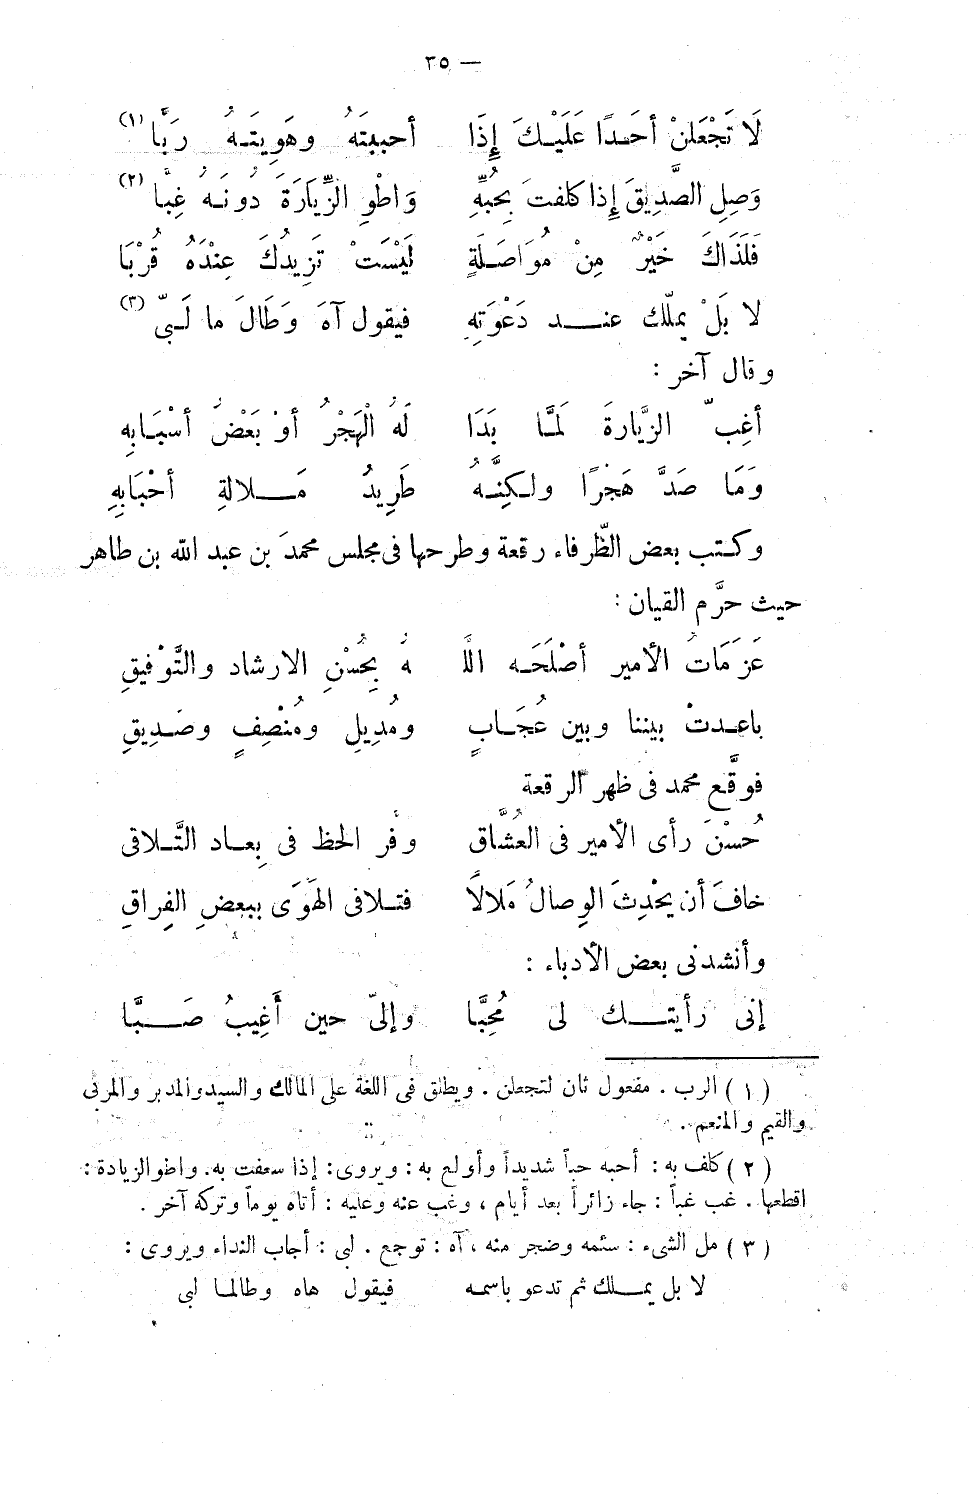 — ٣٥
لَا تَجْعَلَنْ أحَدًا عَلَيْكَ إِذَا أحببتَهُ وهَوِيتَهُ رَبَّا (١)
وَصِلِ الصَّدِيقَ إِذا كلفتَ بِحُبِّهِ وَاطْوِ الزِّيَارَةَ دُونَهُ غِبَّا (٢)
فَلَذَاكَ خَيْرٌ مِنْ مُوَاصَلَةٍ لَيْسَتْ تَزِيدُكَ عِنْدَهُ قُرْبَا
لا بَلْ يملّك عند دَعْوَتِهِ فيقول آهَ وَطَالَ ما لَبّى (٣)
وقال آخر :
أغِبّ الزِّيارةَ لَمَّا بَدَا لَهُ الْهَجْرُ أوْ بَعْضُ أسْبَابِهِ
وَمَا صَدَّ هَجْرًا ولكِنَّهُ طَرِيدُ مَلالةِ أحْبَابِهِ
وكتب بعض الظّرفاء رقعة وطرحها فى مجلس محمدَ بن عبد الله بن طاهر
حيث حرَّم القيان :
عَزَمَاتُ الأمير أصْلَحَه اللَّهُ بِحُسْنِ الارشاد والتَّوْفِيقِ
باعدتْ بيننا وبين عُجَابٍ ومُدِيلِ ومُنْصِفٍ وصَدِيقِ
فوقَّع محمد فى ظهر الرقعة
حُسْنَ رأى الأمير فى العُشَّاق وفُر الحظ فى بِعاد التَّلاقى
خافَ أن يحْدِثَ الوِصالُ مَلالًا فتلافى الهَوَى ببعضِ الفِراقِ
وأنشدنى بعض الأدباء :
إنى رأيتك لى مُحِبَّا وإلىّ حين أَغِيبُ صَبَّا
(١) الرب . مفعول ثان لتجعلن . ويطلق فى اللغة على المالك والسيد والمدبر والمربى
والقيم والمنعم .
(٢) كلف به : أحبه حباً شديداً وأولع به : ويروى : إذا سعفت به. واطو الزيادة :
اقطعها . غب غباً : جاء زائراً بعد أيام ، وغب عنه وعليه : أتاه يوماً وتركه آخر .
(٣) مل الشىء : سئمه وضجر منه ، آه : توجع . لبى : أجاب النداء ويروى :
لا بل يملك ثم تدعو باسمه فيقول هاه وطالما لبى